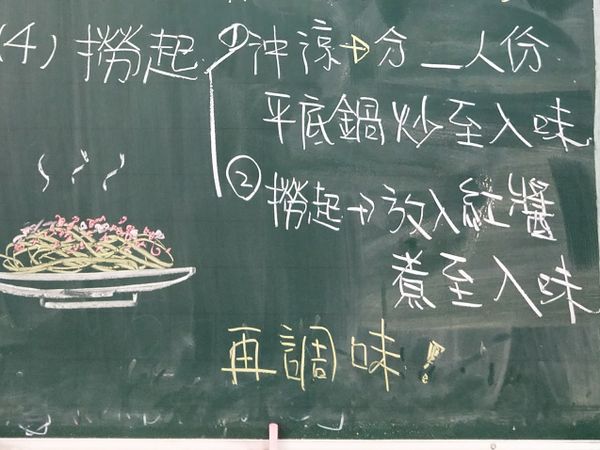 (4) 撈起 ① 沖涼→分_人份
平底鍋炒至入味
② 撈起→放入紅醬
煮至入味
再調味!